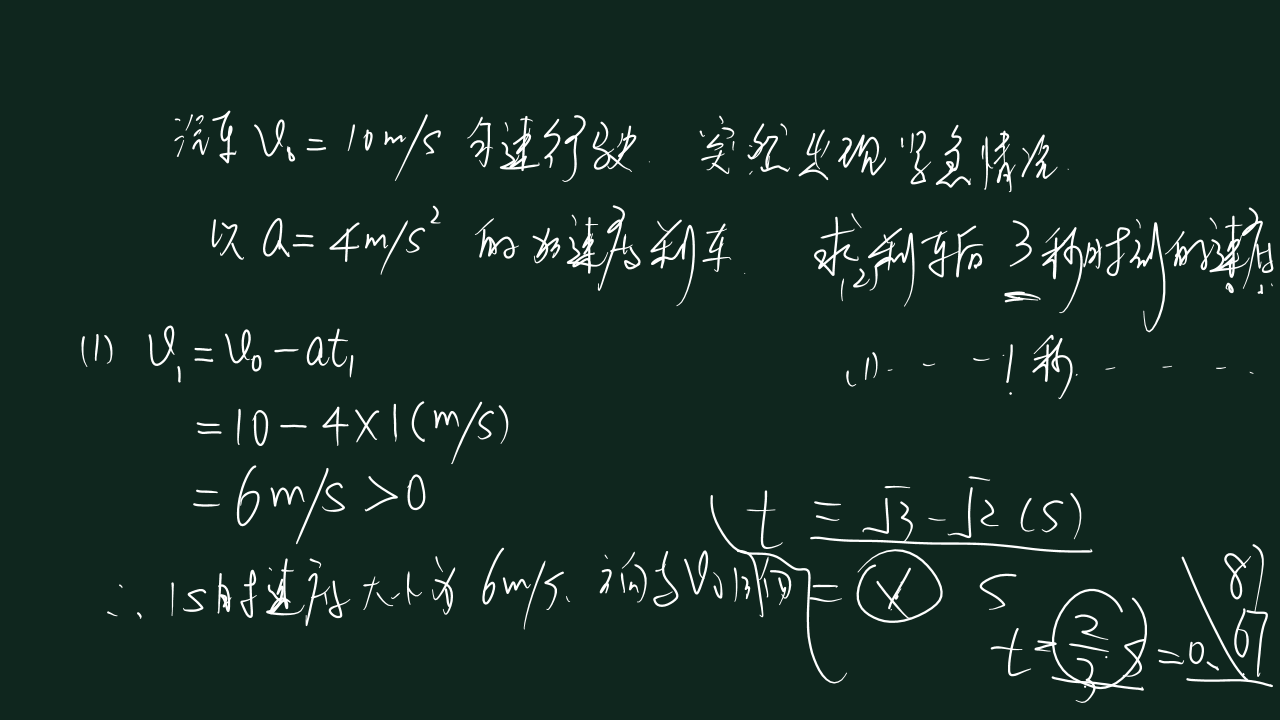 汽车 v₀ = 10m/s 匀速行驶. 突然发现紧急情况.
以 a = 4m/s² 的加速度刹车. 求 (2) 刹车后 3 秒时刻的速度.
(1) - - - 1 秒 - - - -
(1) v₁ = v₀ - at₁
= 10 - 4×1 (m/s)
= 6m/s > 0
∴ 1s时速度大小为 6m/s、方向与v₀同向
t = √3 - √2 (s)
= s
t = 2/3 s = 0.
67